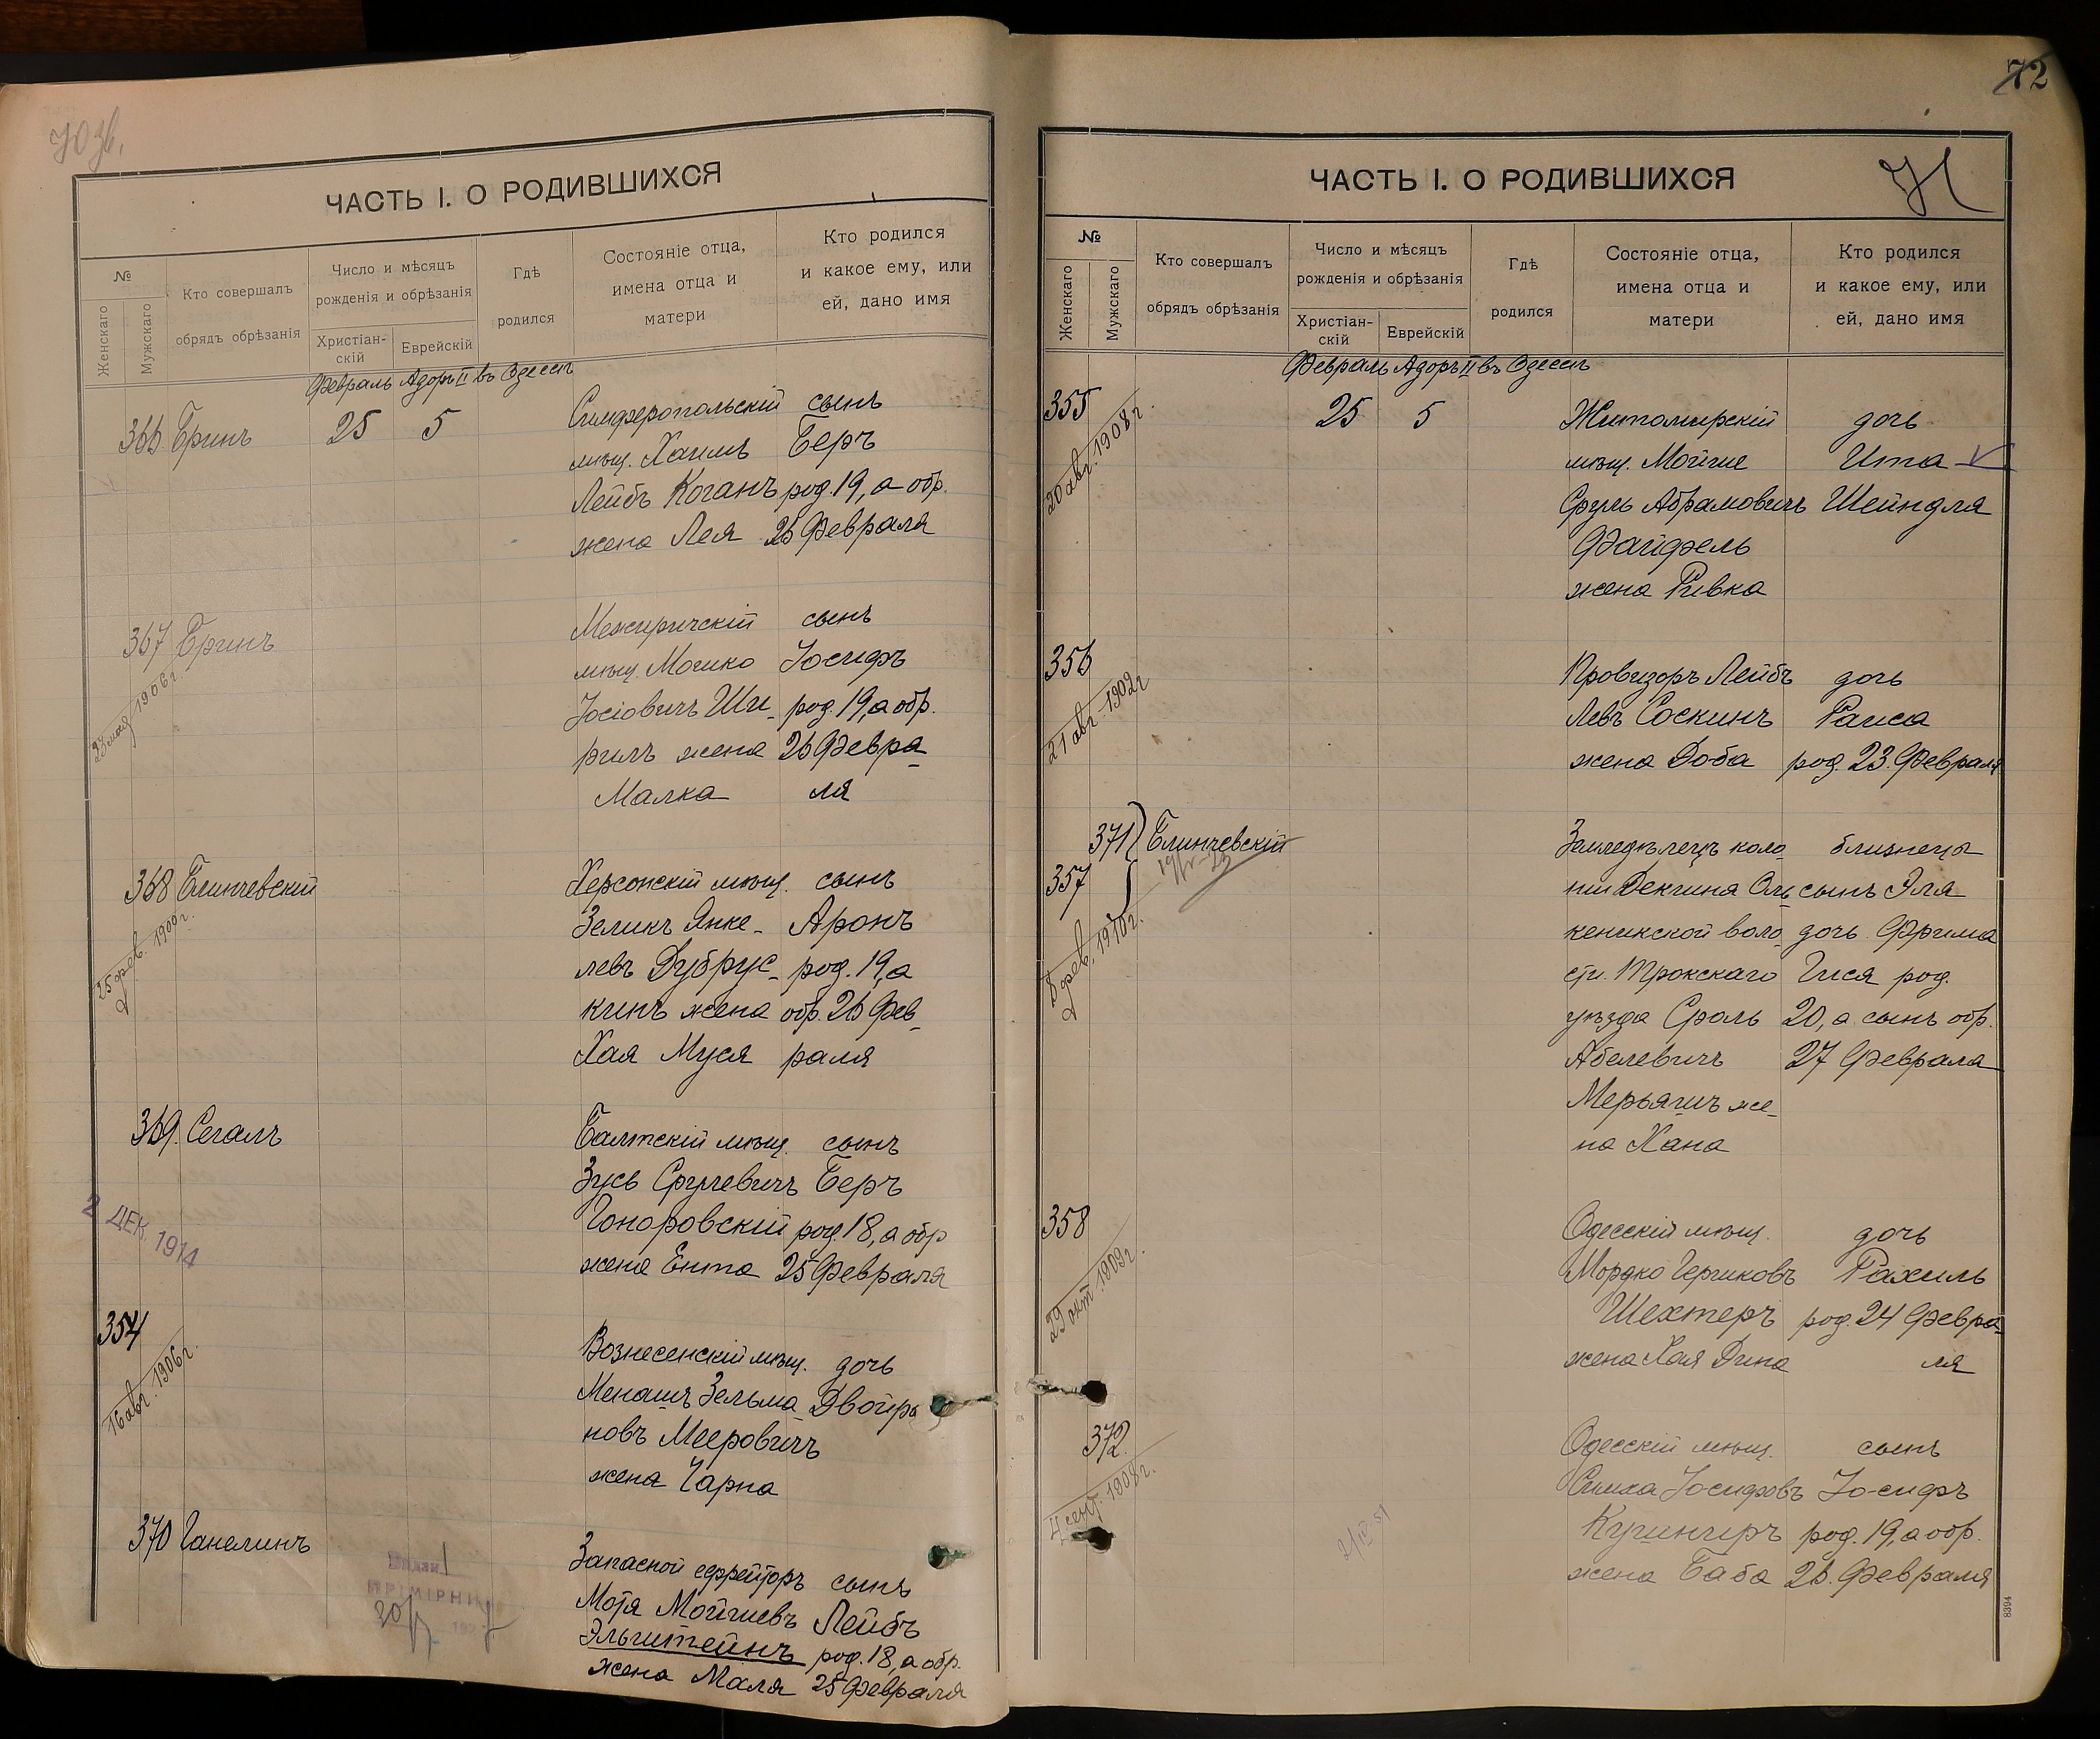 ЧАСТЬ I. О РОДИВШИХСЯ
№
Женскаго
Мужскаго
Кто совершалъ
обрядъ обрѣзанія
Число и мѣсяцъ
рожденія и обрѣзанія
Христіан-
скій
Еврейскій
Гдѣ
родился
Состояніе отца,
имена отца и
матери
Кто родился
и какое ему, или
ей, дано имя
Февраль Адоръ II въ Одессѣ
366 Бринъ 25 5 Симферопольскій сынъ
мѣщ. Хаимъ Беръ
Лейбъ Коганъ род. 19, а обр.
жена Лея 26 Февраля
367 Бринъ Межиричскій сынъ
23 мая 1906 г.
мѣщ. Мошко Іосифъ
Іосіовичъ Ши- род. 19, а обр.
рилъ жена 26 Февра-
Малка ля
368 Блинчевскій Херсонскій мѣщ. сынъ
25 фев. 1900 г.
Зеликъ Янке- Аронъ
левъ Дубрус- род. 19, а
кинъ жена обр. 26 Фев-
Хая Муся раля
369. Сегалъ Балтскій мѣщ. сынъ
Зусь Срулевичъ Беръ
2 ДЕК 1914
Гоноровскій род. 18, а обр
жена Ента 25 Февраля
354 Вознесенскій мѣщ. дочь
16 авг. 1906 г.
Менашъ Зельма- Двойра
новъ Мееровичъ
жена Чарна
370 Ганелинъ Запасной ефрейторъ сынъ
Мотя Мойшевъ Лейбъ
Эльштейнъ род. 18, а обр.
жена Маля 25 Февраля
72
ЧАСТЬ I. О РОДИВШИХСЯ
№
Женскаго
Мужскаго
Кто совершалъ
обрядъ обрѣзанія
Число и мѣсяцъ
рожденія и обрѣзанія
Христіан-
скій
Еврейскій
Гдѣ
родился
Состояніе отца,
имена отца и
матери
Кто родился
и какое ему, или
ей, дано имя
Февраль Адоръ II въ Одессѣ
355 25 5 Житомирскій дочь
20 авг. 1908 г.
мѣщ. Мойше Ита
Сруль Абрамовичъ Шейндля
Файфель
жена Ривка
356 Провизоръ Лейбъ дочь
21 авг. 1902 г
Левъ Соскинъ Раиса
жена Доба род. 23 Февраля
371 Блинчевскій Земледѣлецъ коло- близнецы
357 ніи Декшня Оль- сынъ Эля
8 фев. 1910 г.
кеникской воло- дочь Фрима
сти. Трокскаго Гися род.
уѣзда Сроль 20, а сынъ обр.
Абелевичъ 27 Февраля
Мерьяшъ же-
на Хана
358 Одесскій мѣщ. дочь
29 окт. 1909 г.
Мордко Гершковъ Рахиль
Шехтеръ род. 24 Февра-
жена Хая Дина ля
372. Одесскій мѣщ. сынъ
4 сент. 1908 г.
Симха Іосифовъ Іосифъ
Кушниръ род. 19, а обр.
жена Баба 26 Февраля
8394